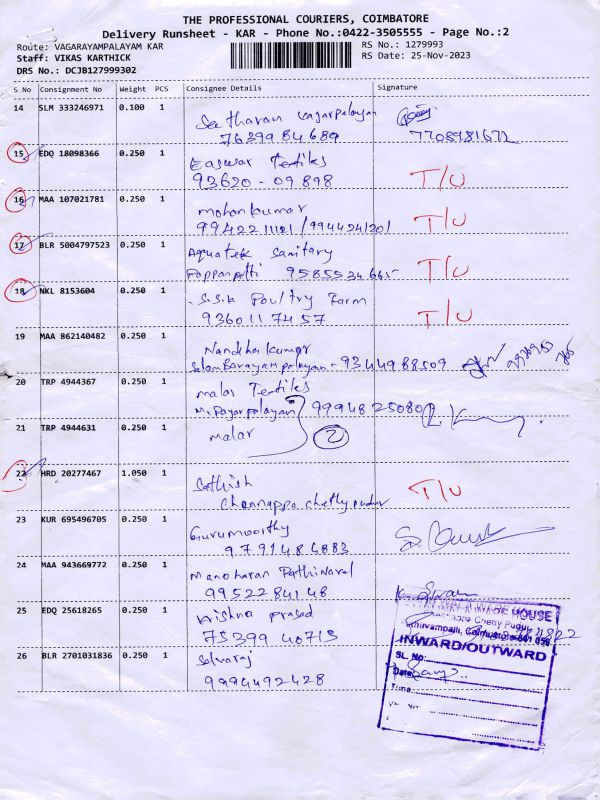 THE PROFESSIONAL COURIERS, COIMBATORE
Delivery Runsheet - KAR - Phone No.:0422-3505555 - Page No.:2
Route: VAGARAYAMPALAYAM KAR
RS No.: 1279993
Staff: VIKAS KARTHICK
RS Date: 25-Nov-2023
DRS No.: DCJB127999302
S No Consignment No Weight PCS Consignee Details Signature
14 SLM 333246971 0.100 1
7708981672
15 EDQ 18098366 0.250 1
Easwar Textiles
93620-09898 T/U
16 MAA 107021781 0.250 1
Mohan Kumar
T/U
17 BLR 5004797523 0.250 1
Aquatek Sanitary
9585534665 T/U
18 NKL 8153604 0.250 1
S.S.K Poultry Farm
9360117457 T/U
19 MAA 862140482 0.250 1
Nandha Kumar
9344988509
20 TRP 4944367 0.250 1
Malar Textiles
9994825080
21 TRP 4944631 0.250 1
Malar 2
22 HRD 20277467 1.050 1
Sathish T/U
Chennappa Chetty pudur
23 KUR 695496705 0.250 1
Gurumoorthy
9791484883
24 MAA 943669772 0.250 1
Manoharan Pathinavel
9952284148
25 EDQ 25618265 0.250 1
Krishna Prasad
75399 40713
WARE HOUSE
Chetty Pudur,
Coimbatore-641 059
INWARD/OUTWARD
SL. No:
Date:
Time:
26 BLR 2701031836 0.250 1
Selvaraj
9994492428